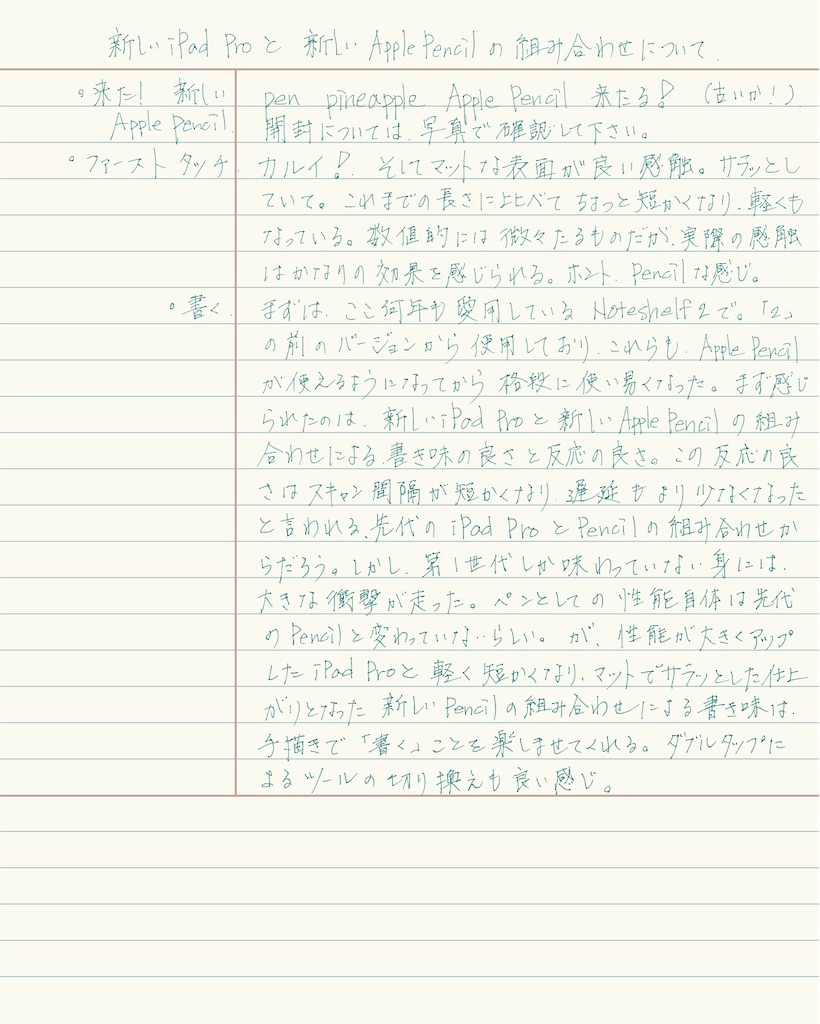 新しい iPad Pro と 新しい Apple Pencil の 組み合わせについて.
。来た! 新しい
Apple Pencil.
pen pineapple Apple Pencil 来たる! (古いか!).
開封については、写真で確認して下さい。
。ファースト タッチ.
カルイ!. そしてマットな表面が良い感触。サラッとし
ていて。これまでの長さに比べてちょっと短かくなり、軽くも
なっている。数値的には微々たるものだが、実際の感触
はかなりの効果を感じられる。ホント、Pencilな感じ。
。書く.
まずは、ここ何年も愛用している Noteshelf2で。「2」
の前のバージョンから使用しており、これらも、Apple Pencil
が使えるようになってから格段に使い易くなった。まず感じ
られたのは、新しいiPad Proと新しいApple Pencilの組み
合わせによる、書き味の良さと反応の良さ。この反応の良
さはスキャン間隔が短かくなり、遅延もより少なくなった
と言われる、先代の iPad Pro とPencilの組み合わせか
らだろう。しかし、第1世代しか味わっていない身には、
大きな衝撃が走った。ペンとしての性能自体は先代
のPencilと変わっていないらしい。が、性能が大きくアップ
した iPad Proと軽く短かくなり、マットでサラッとした仕上
がりとなった新しいPencilの組み合わせによる書き味は、
手描きで「書く」ことを楽しませてくれる。ダブルタップに
よるツールの切り換えも良い感じ。